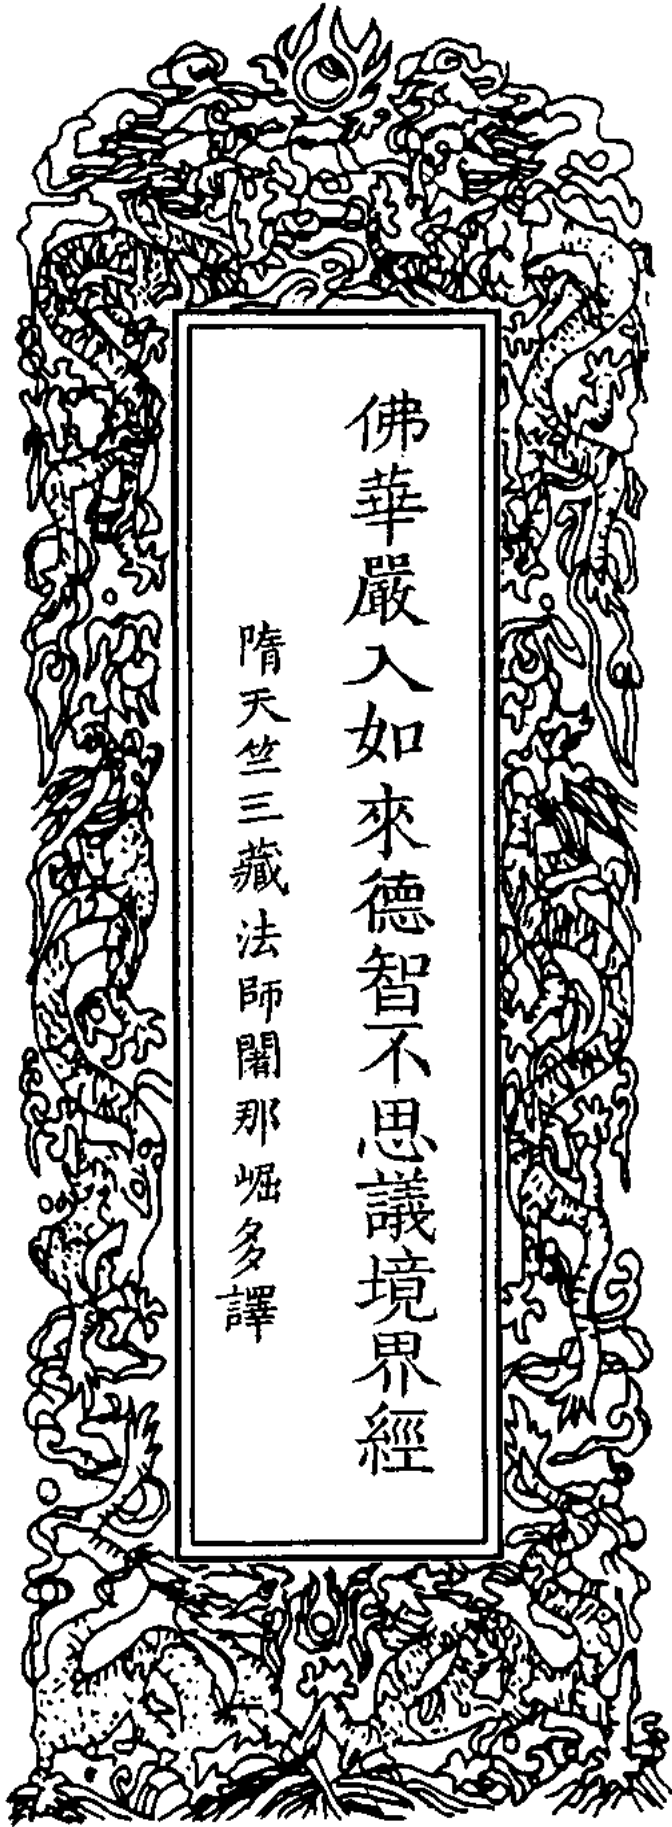 佛華嚴入如來德智不思議境界經
隋天竺三藏法師闍那崛多譯